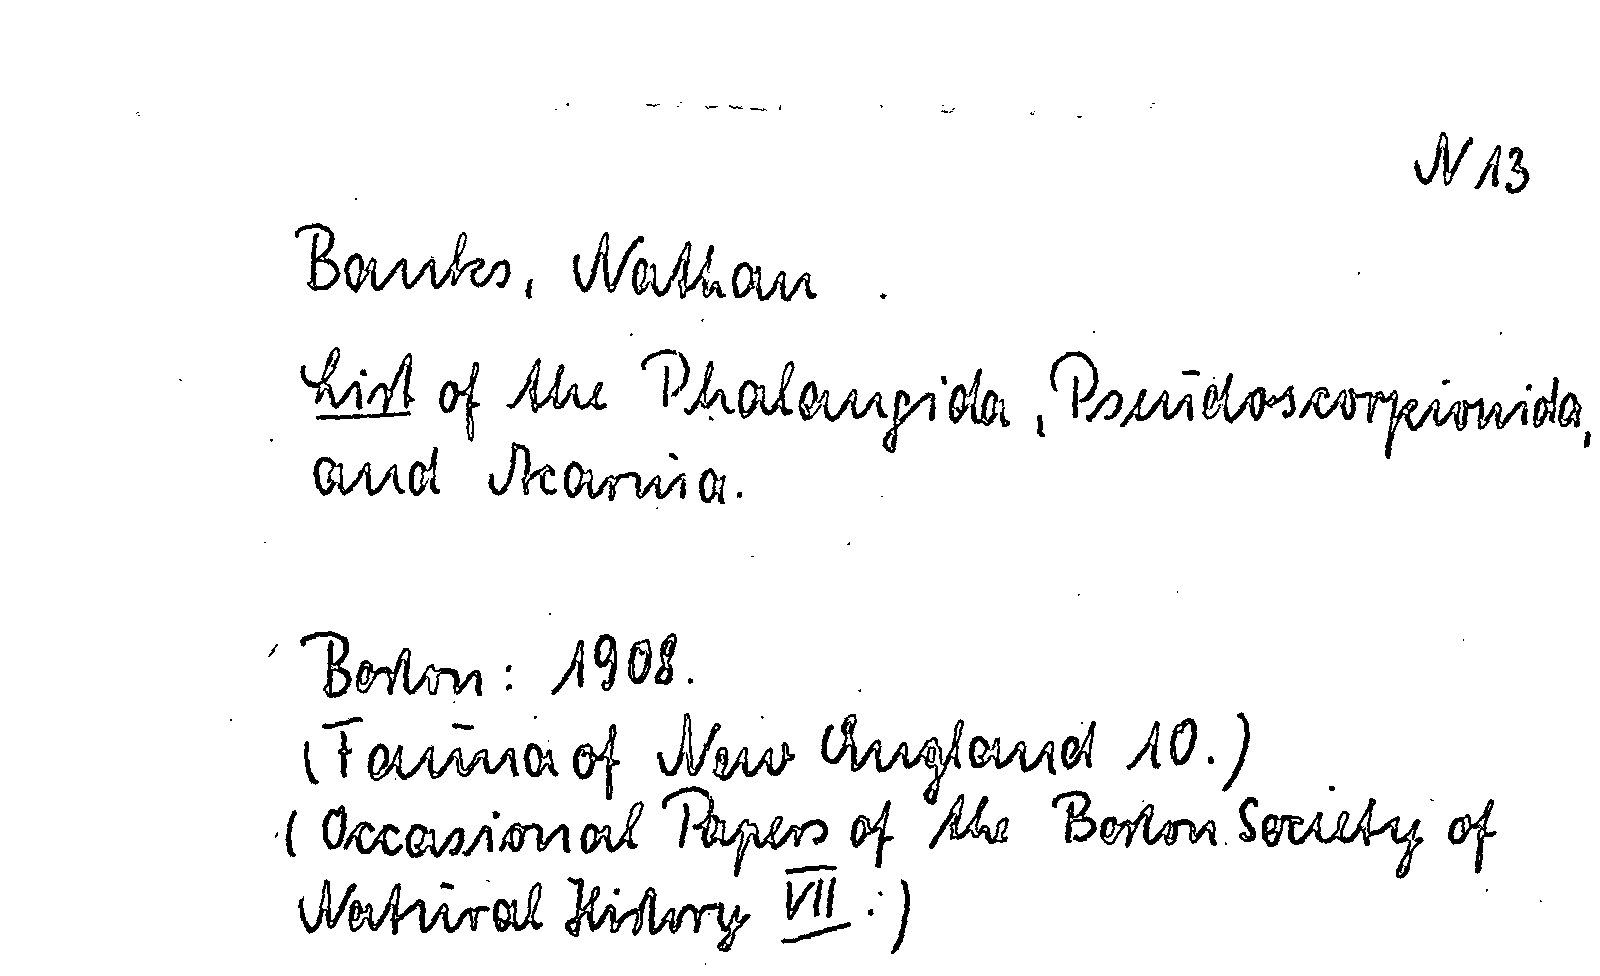 N 13
Banks, Nathan.
List of the Phalangida, Pseudoscorpionida,
and Acarina.
Boston: 1908.
(Fauna of New England 10.)
(Occasional Papers of the Boston Society of
Natural History VII.)